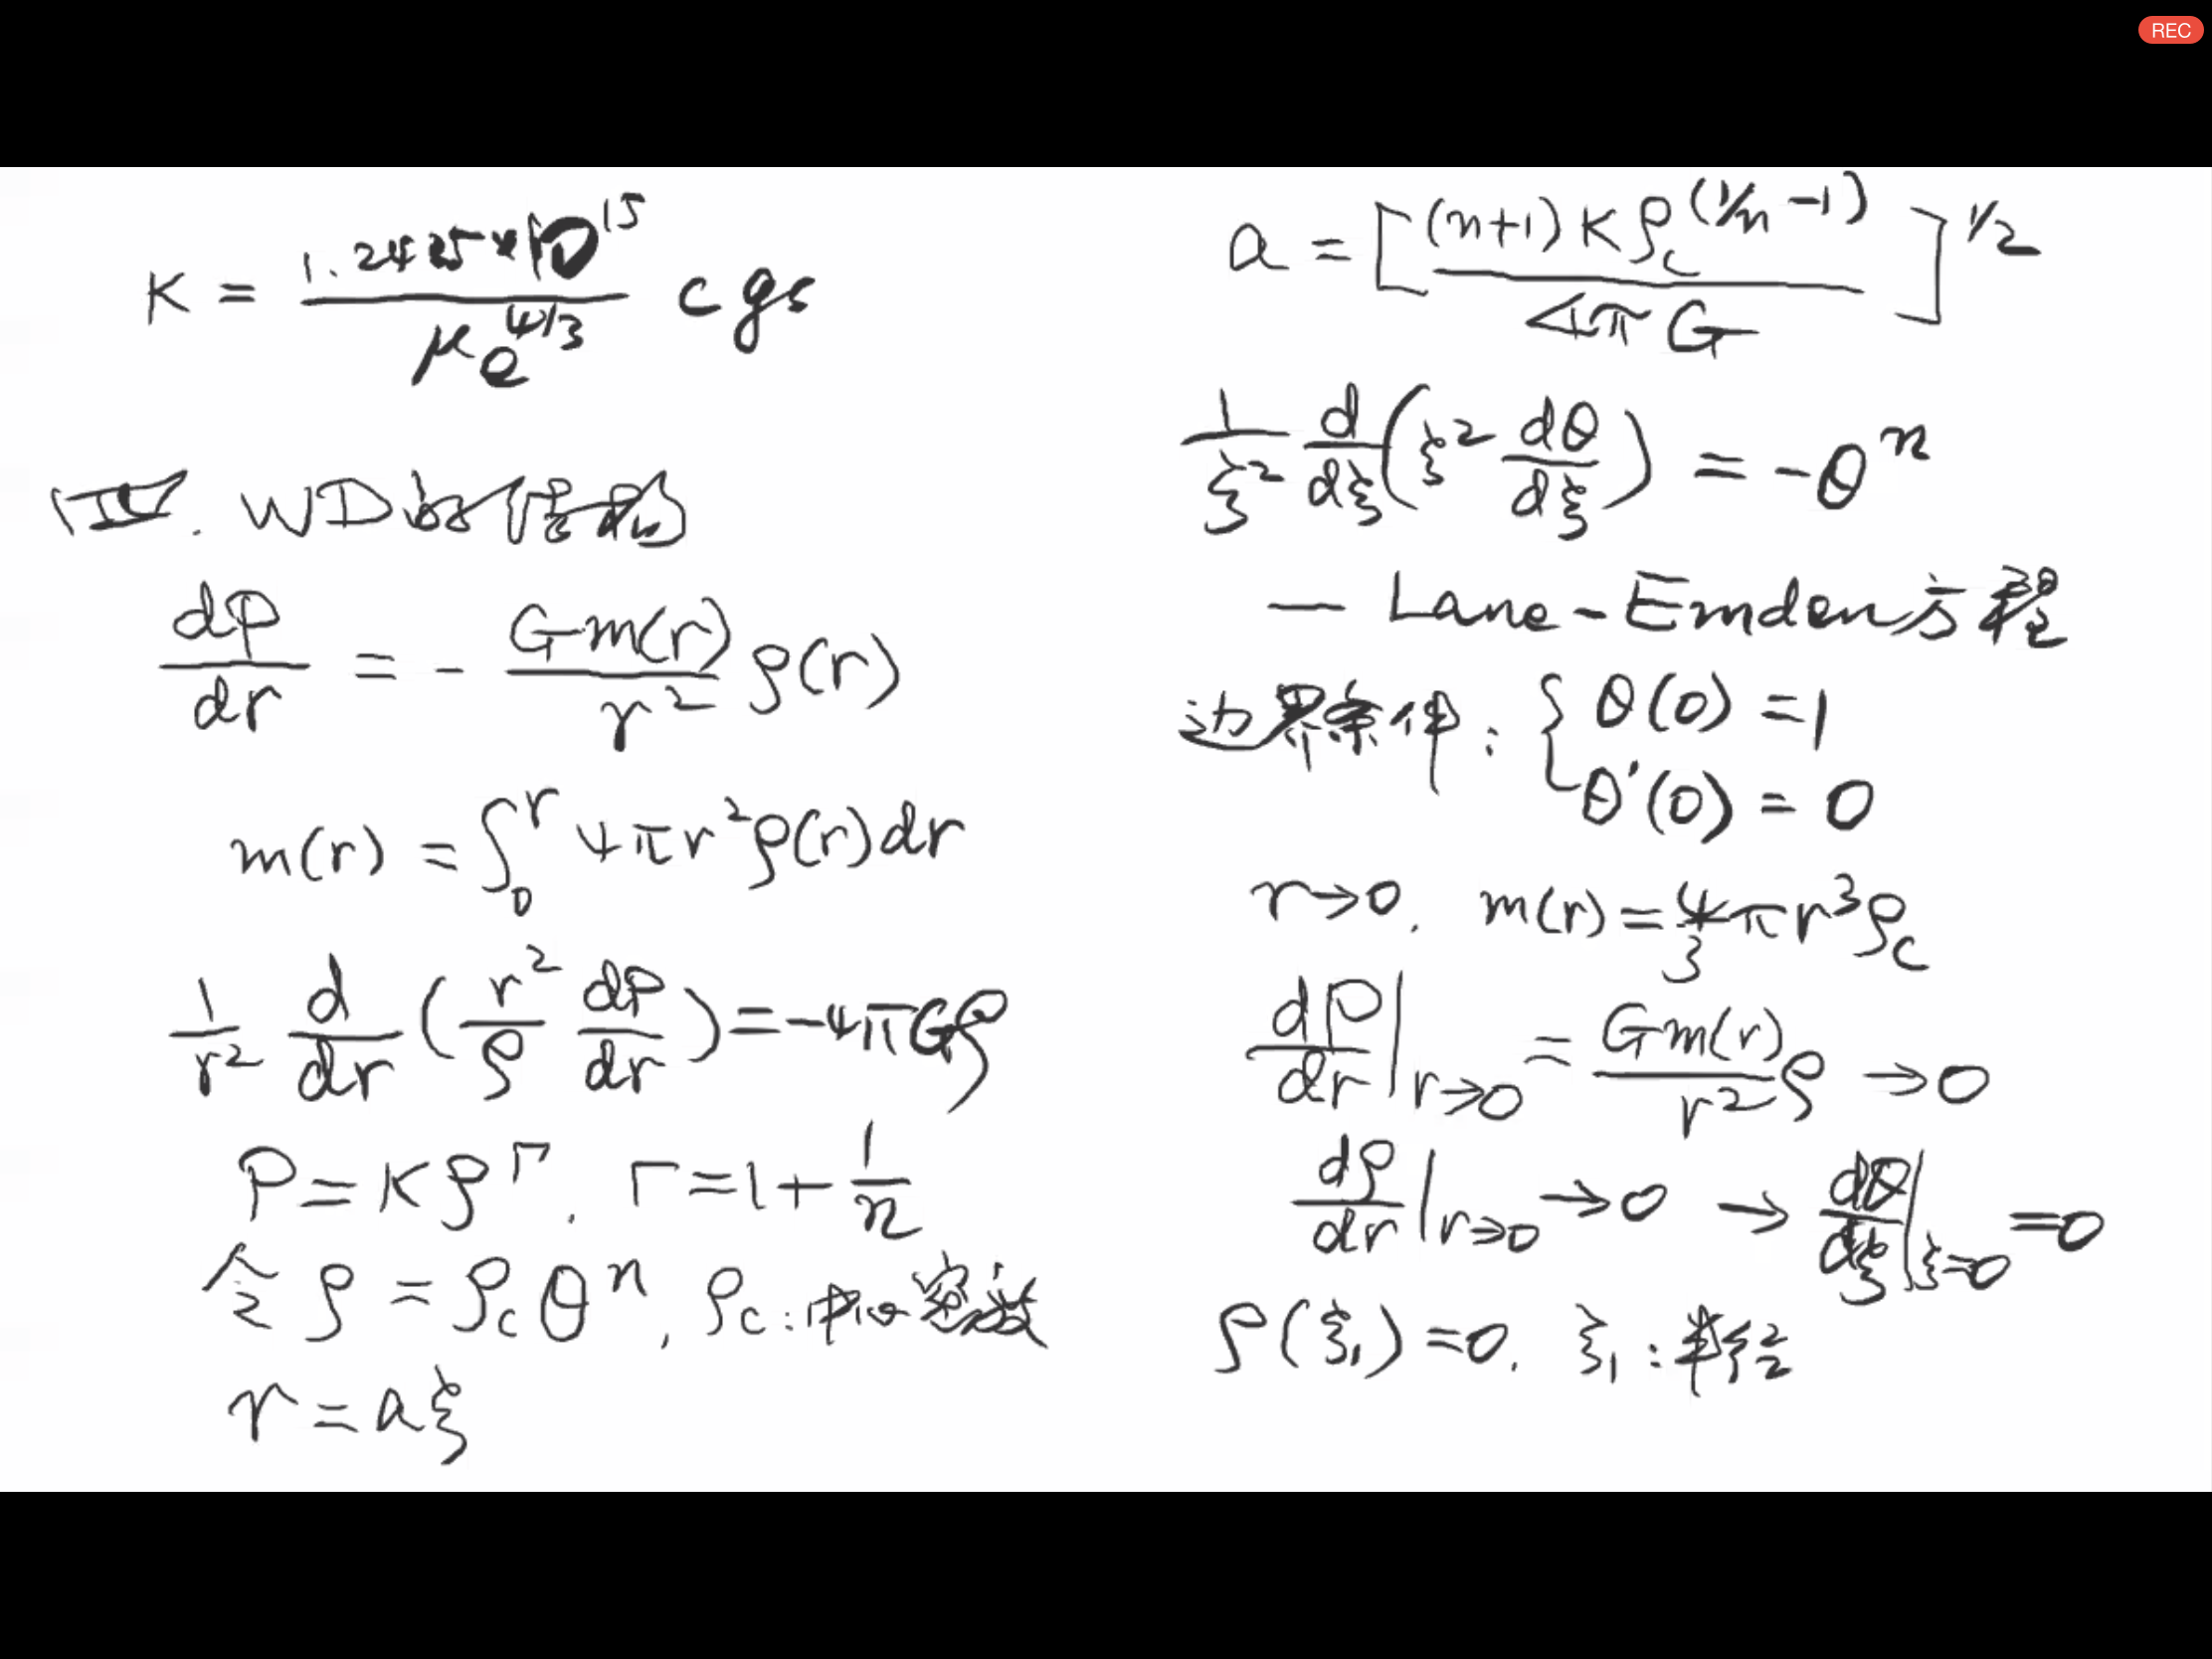 REC
K = 1.2425×10^15 / μe^4/3 cgs
IV. WD的结构
dP/dr = - Gm(r)/r² ρ(r)
m(r) = ∫₀^r 4πr²ρ(r)dr
1/r² d/dr (r²/ρ dP/dr) = -4πGρ
P = Kρ^Γ, Γ = 1 + 1/n
令 ρ = ρc θ^n, ρc: 中心密度
r = aξ
a = [(n+1)Kρc^(1/n -1) / 4πG]^1/2
1/ξ² d/dξ (ξ² dθ/dξ) = -θ^n
— Lane-Emden方程
边界条件: { θ(0) = 1
θ'(0) = 0
r→0, m(r) = 4/3 πr³ρc
dP/dr |r→0 = Gm(r)/r² ρ → 0
dρ/dr |r→0 → 0 → dθ/dξ |ξ=0 = 0
ρ(ξ₁) = 0, ξ₁: 半径